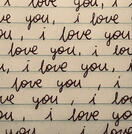 love you, i love
you, i love you,
i love you, i love
love you, i love
u, i love you,
love you, i
ve you, i love
you, i love you
i love you, i